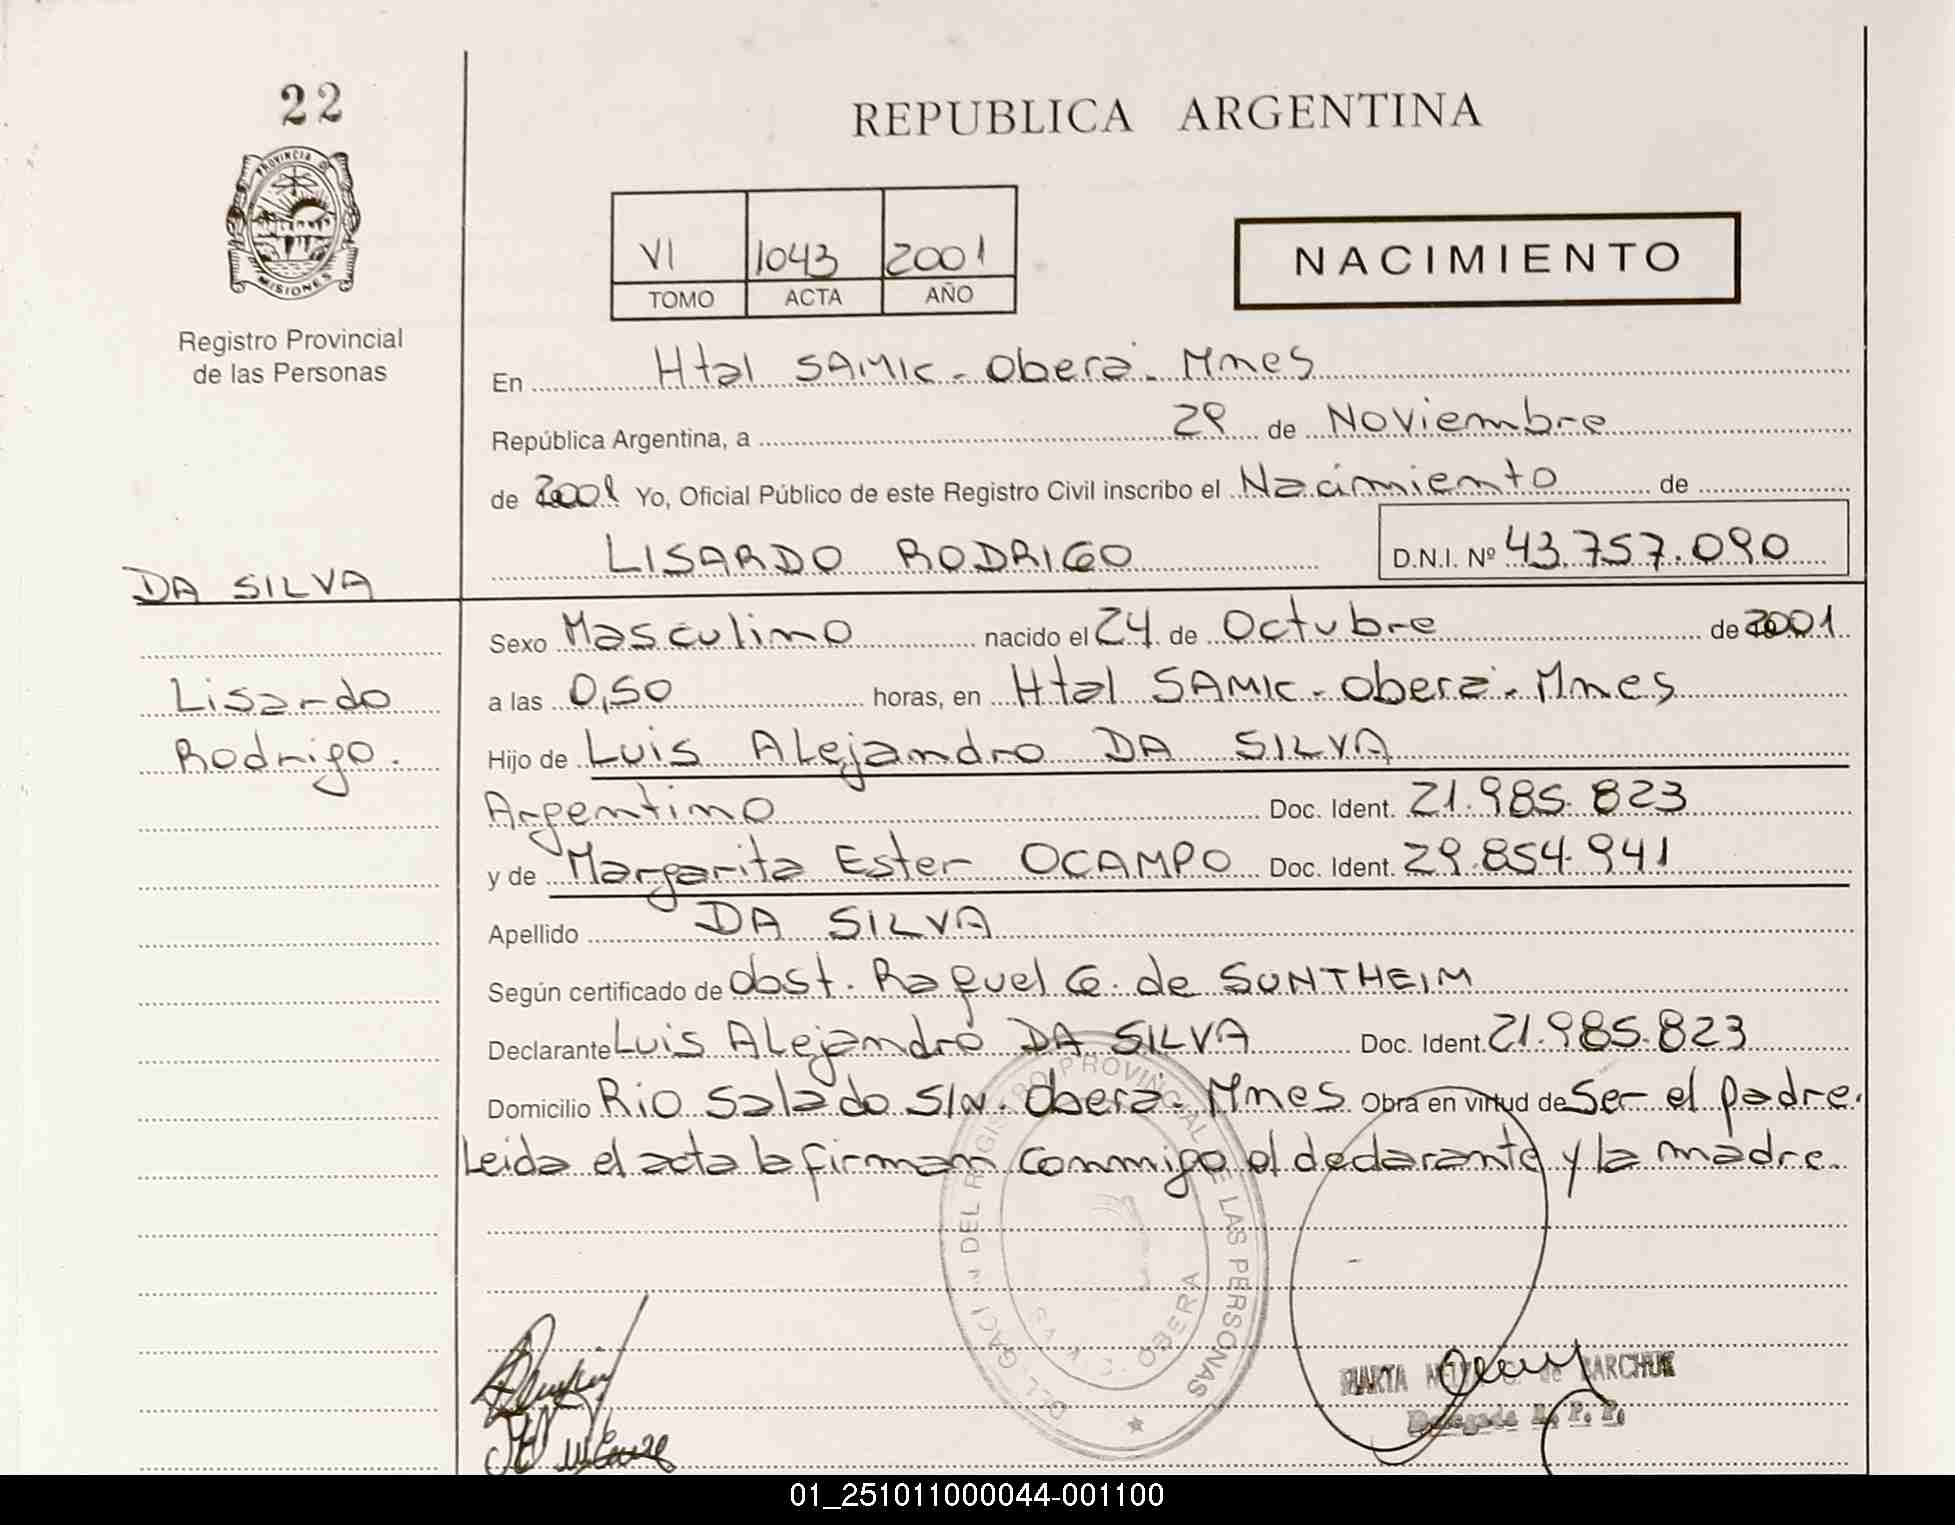 22
REPUBLICA ARGENTINA
PROVINCIA DE
MISIONES
VI 1043 2001
TOMO ACTA AÑO
NACIMIENTO
Registro Provincial
de las Personas
En Htal SAMIC - Oberá - Mnes
República Argentina, a 29 de Noviembre
de 2001 Yo, Oficial Público de este Registro Civil inscribo el Nacimiento de
LISARDO RODRIGO D.N.I. Nº 43.757.090
DA SILVA
Lisardo
Rodrigo.
Sexo Masculino nacido el 24 de Octubre de 2001
a las 0,50 horas, en Htal SAMIC - Oberá - Mnes
Hijo de Luis Alejandro DA SILVA
Argentino Doc. Ident. 21.985.823
y de Margarita Ester OCAMPO Doc. Ident. 29.854.941
Apellido DA SILVA
Según certificado de Obst. Raquel G. de SUNTHEIM
Declarante Luis Alejandro DA SILVA Doc. Ident. 21.985.823
Domicilio Rio Salado S/N. Oberá - Mnes Obra en virtud de Ser el padre.
Leida el acta la firman conmigo el declarante y la madre.
DEL REGISTRO PROVINCIAL DE LAS PERSONAS
OBERA
MARTA de BARCHUK
Delegada R. P. P.
01_251011000044-001100